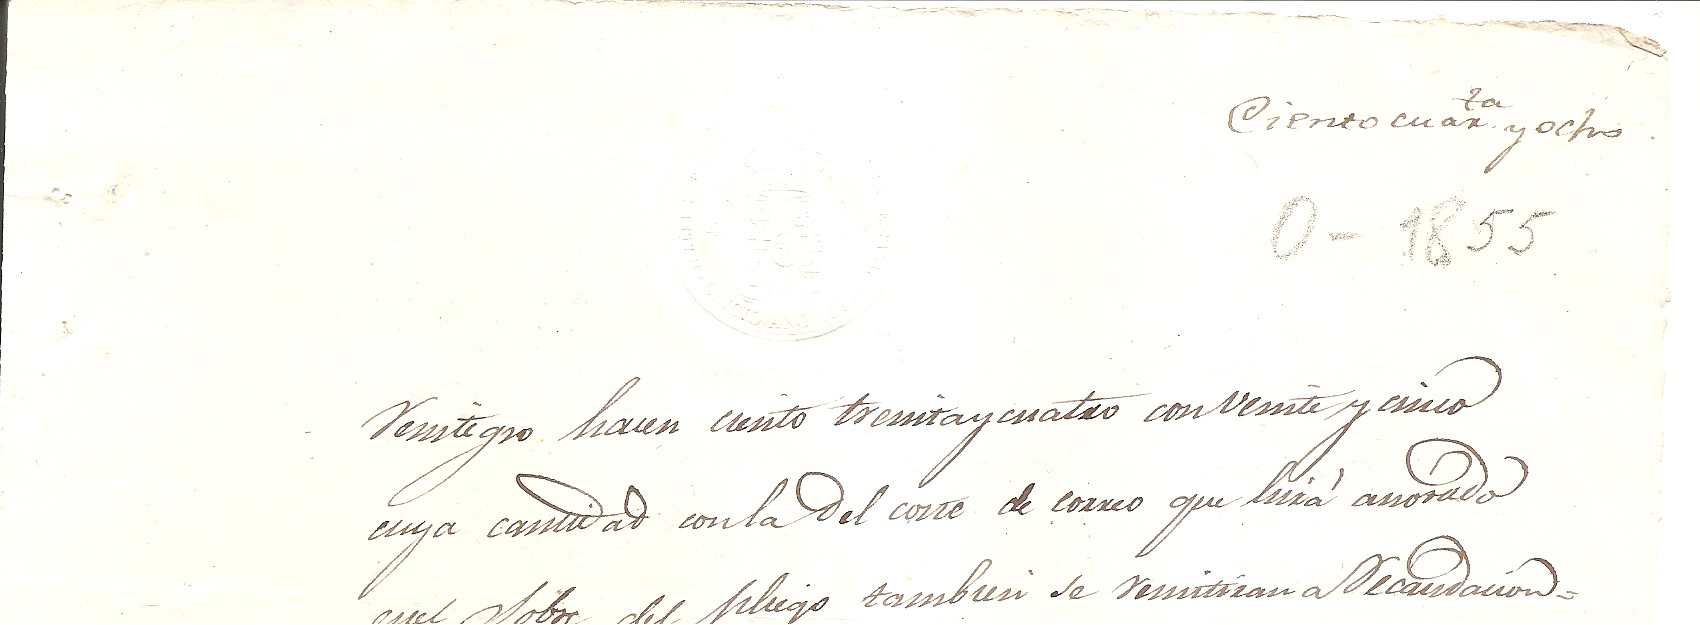 Ciento cuar.ta y ocho
0 - 1855
Reintegro hacen ciento treinta y cuatro con veinte y cinco
cuya cantidad con la del corte de correo que hirá anotado
en el sobre del pliego tambien se remitiran a Recaudacion=